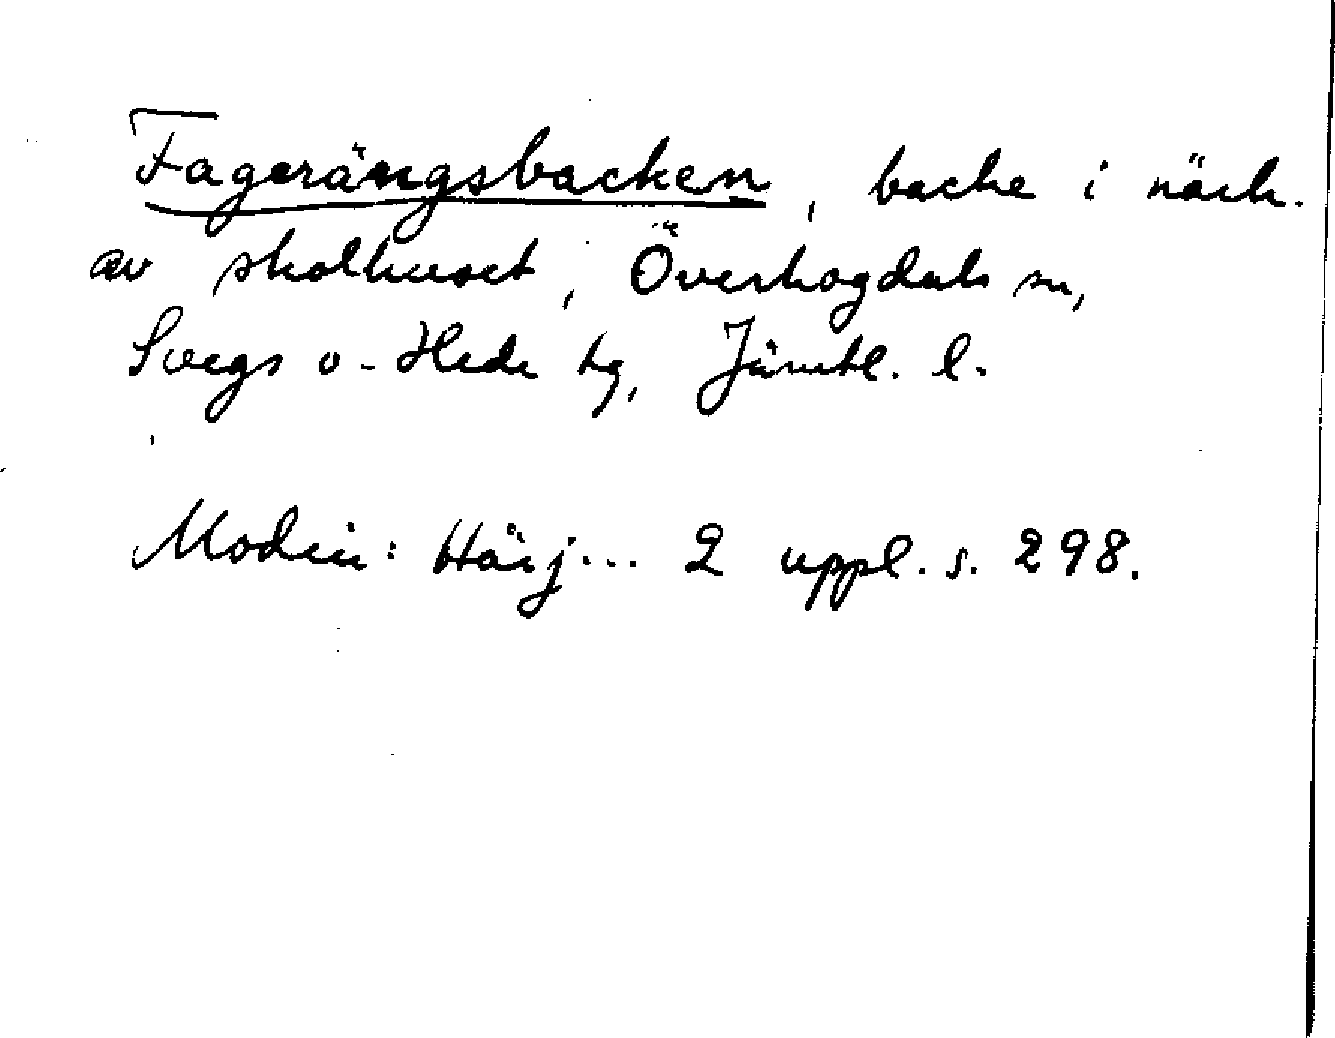 Fagerängsbacken, backe i närh.
av skolhuset, Överhogdals sn,
Svegs o-Hede tg, Jämtl. l.
Modin: Härj... 2 uppl. s. 298.